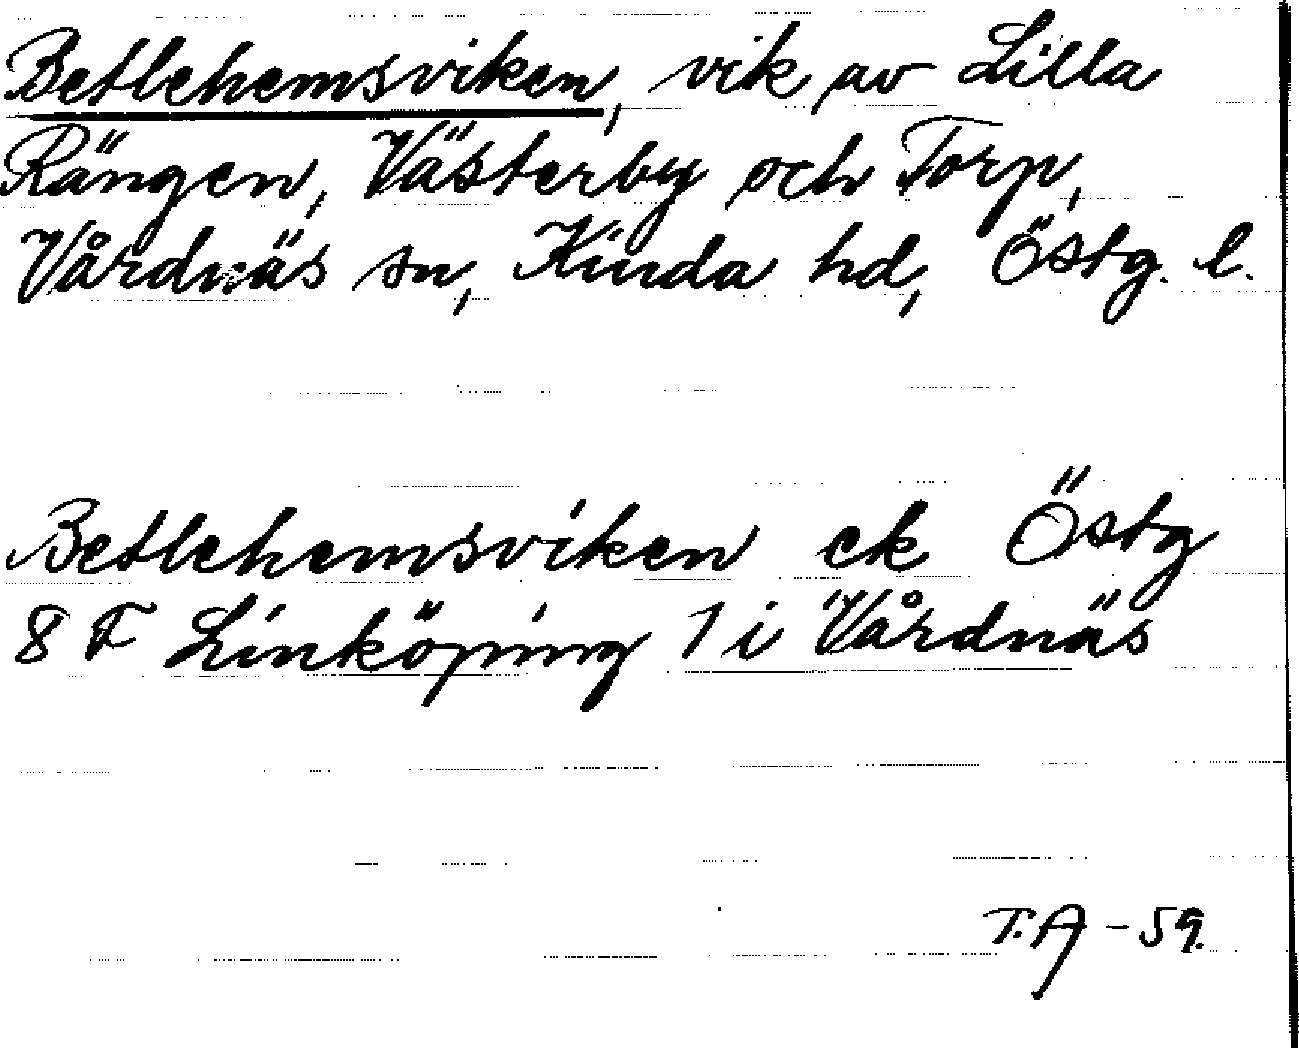 Betlehemsviken, vik av Lilla
Rängen, Västerby och Torp,
Vårdnäs sn, Kinda hd, Östg. l.
Betlehemsviken ek Östg
8 F Linköping 1 i Vårdnäs
T.A -59.